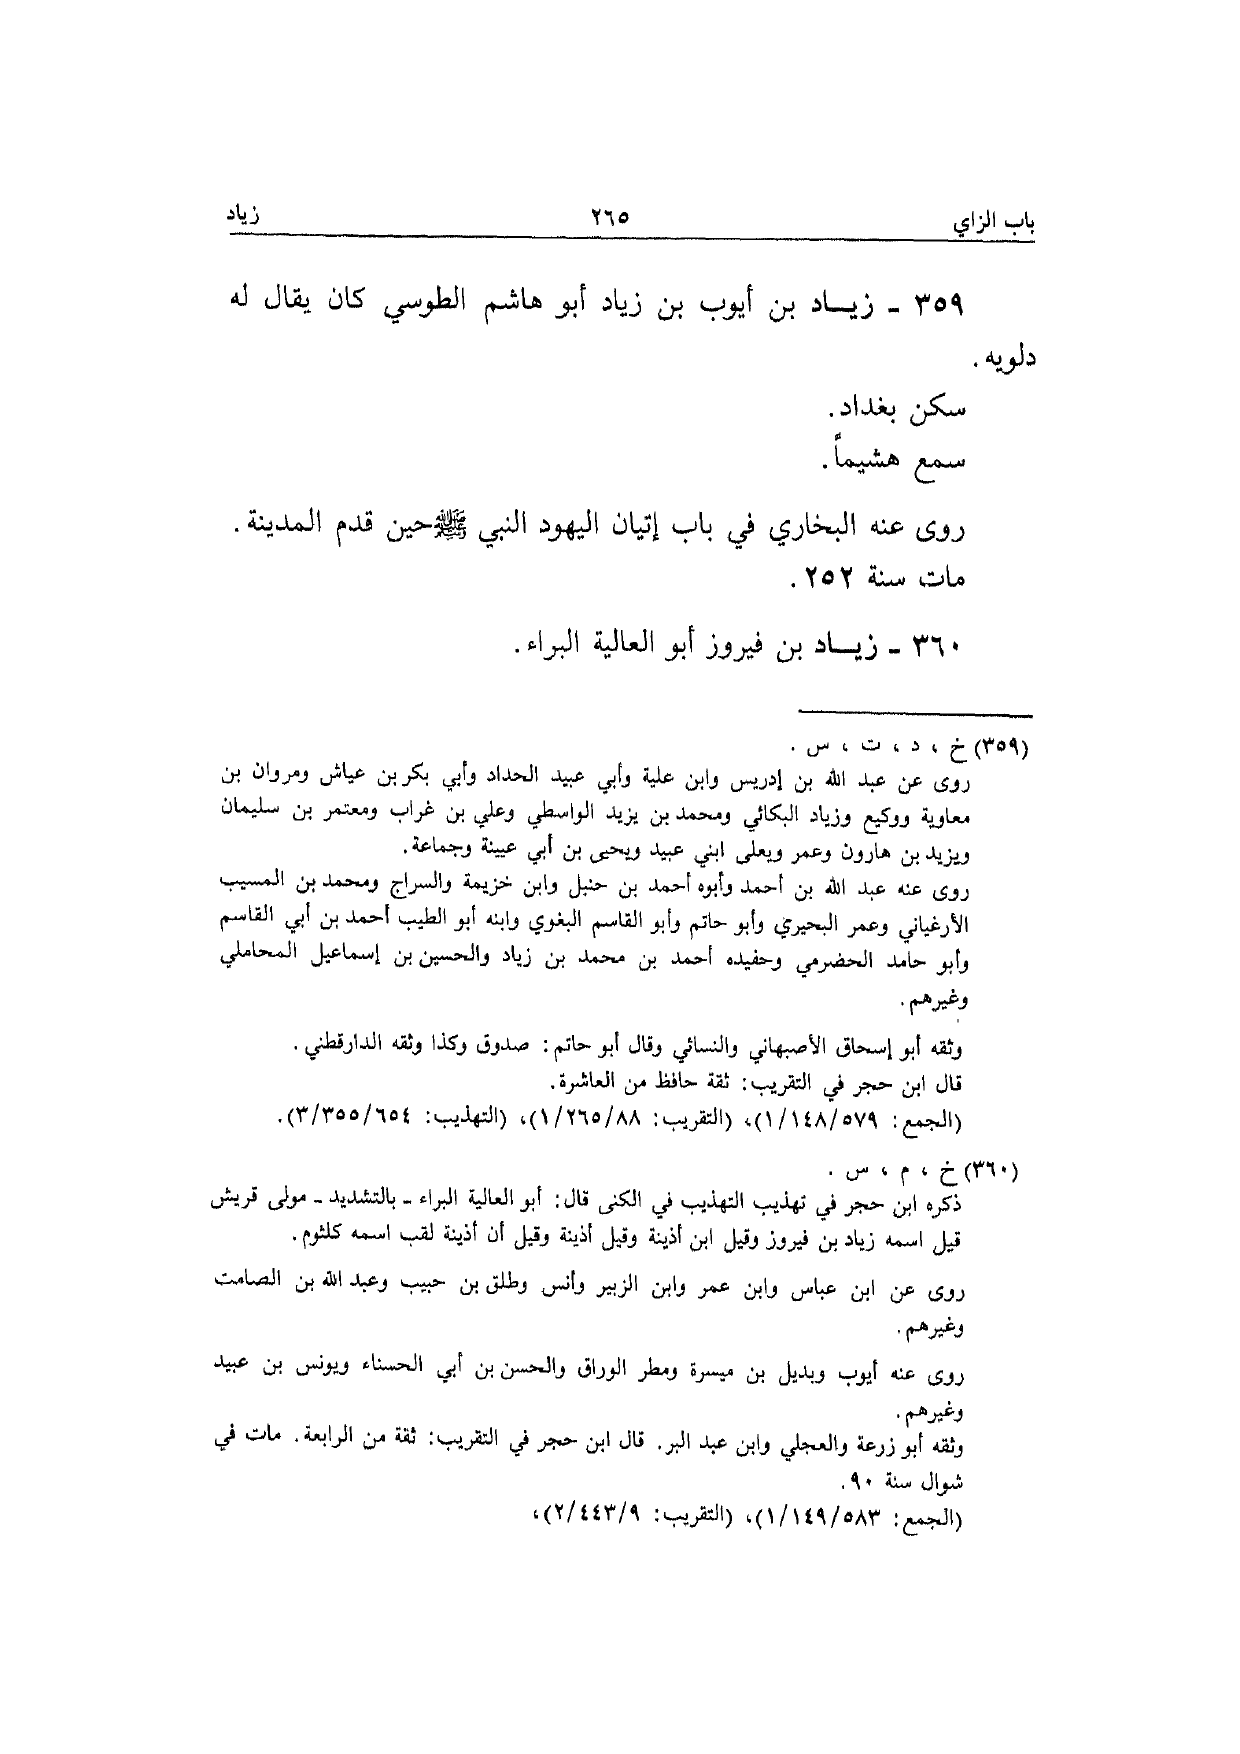 باب الزاي ٢٦٥ زياد
٣٥٩ ـ زيـــاد بن أيوب بن زياد أبو هاشم الطوسي كان يقال له
دلويه .
سكن بغداد.
سمع هشيماً.
روى عنه البخاري في باب إتيان اليهود النبي ﷺ حين قدم المدينة .
مات سنة ٢٥٢ .
٣٦٠ ـ زيـــاد بن فيروز أبو العالية البراء.
(٣٥٩) خ ، د ، ت ، س .
روى عن عبد الله بن إدريس وابن علية وأبي عبيد الحداد وأبي بكر بن عياش ومروان بن
معاوية ووكيع وزياد البكائي ومحمد بن يزيد الواسطي وعلي بن غراب ومعتمر بن سليمان
ويزيد بن هارون وعمر ويعلى ابني عبيد ويحيى بن أبي عيينة وجماعة.
روى عنه عبد الله بن أحمد وأبوه أحمد بن حنبل وابن خزيمة والسراج ومحمد بن المسيب
الأرغياني وعمر البحيري وأبو حاتم وأبو القاسم البغوي وابنه أبو الطيب أحمد بن أبي القاسم
وأبو حامد الحضرمي وحفيده أحمد بن محمد بن زياد والحسين بن إسماعيل المحاملي
وغيرهم.
وثقه أبو إسحاق الأصبهاني والنسائي وقال أبو حاتم: صدوق وكذا وثقه الدارقطني .
قال ابن حجر في التقريب: ثقة حافظ من العاشرة.
(الجمع: ١/١٤٨/٥٧٩)، (التقريب: ١/٢٦٥/٨٨)، (التهذيب: ٣/٣٥٥/٦٥٤).
(٣٦٠) خ ، م ، س .
ذكره ابن حجر في تهذيب التهذيب في الكنى قال: أبو العالية البراء ـ بالتشديد ـ مولى قريش
قيل اسمه زياد بن فيروز وقيل ابن أذينة وقيل أذينة وقيل أن أذينة لقب اسمه كلثوم.
روى عن ابن عباس وابن عمر وابن الزبير وأنس وطلق بن حبيب وعبد الله بن الصامت
وغيرهم.
روى عنه أيوب وبديل بن ميسرة ومطر الوراق والحسن بن أبي الحسناء ويونس بن عبيد
وغيرهم.
وثقه أبو زرعة والعجلي وابن عبد البر. قال ابن حجر في التقريب: ثقة من الرابعة. مات في
شوال سنة ٩٠.
(الجمع: ١/١٤٩/٥٨٣)، (التقريب: ٢/٤٤٣/٩)،